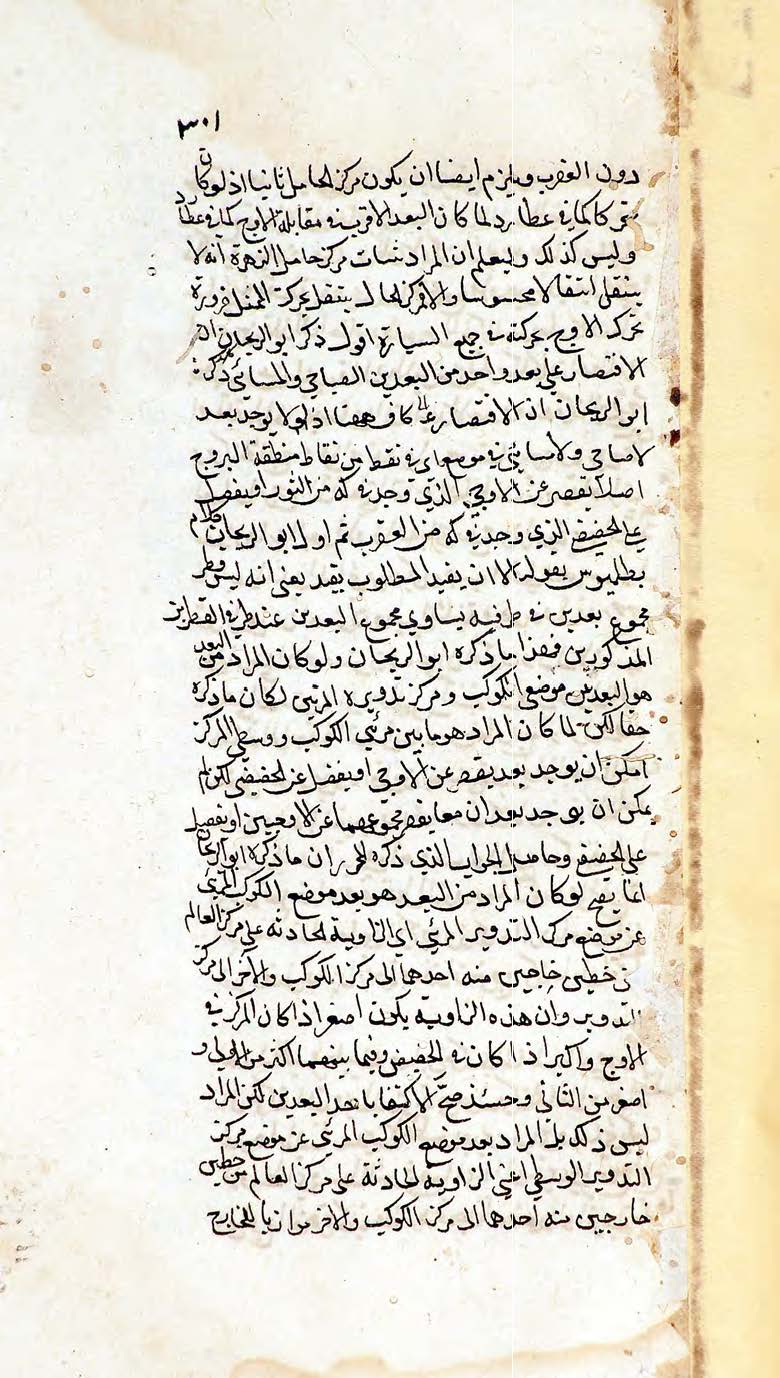 ٣٠١
دون العقرب ويلزم ايضا ان يكون مركز الحامل ثابتا اذ لو كان
متحركا كما في عطارد لما كان البعد الاقرب في مقابلة الاوج كما في عطارد
وليس كذلك وليعلم ان المراد بثبات مركز حامل الزهرة انه لا
ينتقل انتقالا محسوسا والا فمركز الحامل ينتقل بحركة الممثل ضرورة
تحرك الاوج بحركته في جميع السيارة اقول ذكر ابو الريحان ان
الاقتصار على بعد واحد من البعدين الصباحي والمسائي ذكر
ابو الريحان ان الاقتصار عليه كاف ههنا اذ لا يوجد بعد
لا صباحي ولا مسائي في موضع اي في نقطة من نقاط منطقة البروج
اصلا يقصر عن الاوجي الذي وجد في كه من الثور او يفضل
على الحضيضي الذي وجد في كه من العقرب ثم اول ابو الريحان كلام
بطلميوس بقوله الا ان يفيد المطلوب بقيد يعني انه ليس قطر
مجموع بعدين في طرفيه يساوي مجموع البعدين عند طرفي القطر
المذكورين فهذا ما ذكره ابو الريحان ولو كان المراد من البعد
هو البعد بين موضعي الكوكب ومركز تدويره المرئيين لكان ما ذكره
حقا لكن لما كان المراد هو ما بين مرئي الكوكب ووسطي المركز
امكن ان يوجد بعد يقصر عن الاوجي او يفضل عن الحضيضي لكن لم
يمكن ان يوجد بعدان معا يقصر مجموعهما عن الاوجيين او يفضل
على الحضيضي وحاصل الجواب الذي ذكره المحرر ان ما ذكره ابو الريحان
انما يصح لو كان المراد من البعد هو بعد موضع الكوكب المرئي
عن موضع مركز التدوير المرئي اي الزاوية الحادثة على مركز العالم
من خطين خارجين منه احدهما الى مركز الكوكب والآخر الى مركز
التدوير وان هذه الزاوية يكون اصغر اذا كان المركز في
الاوج واكبر اذا كان في الحضيض وفيما بينهما اكثر من الاول و
اصغر من الثاني وحينئذ صح الاكتفا باحد البعدين لكن المراد
ليس ذلك بل المراد بعد موضع الكوكب المرئي عن موضع مركز
التدوير الوسطي اعني الزاوية الحادثة على مركز العالم من خطين
خارجين منه احدهما الى مركز الكوكب والآخر موازيا للخارج